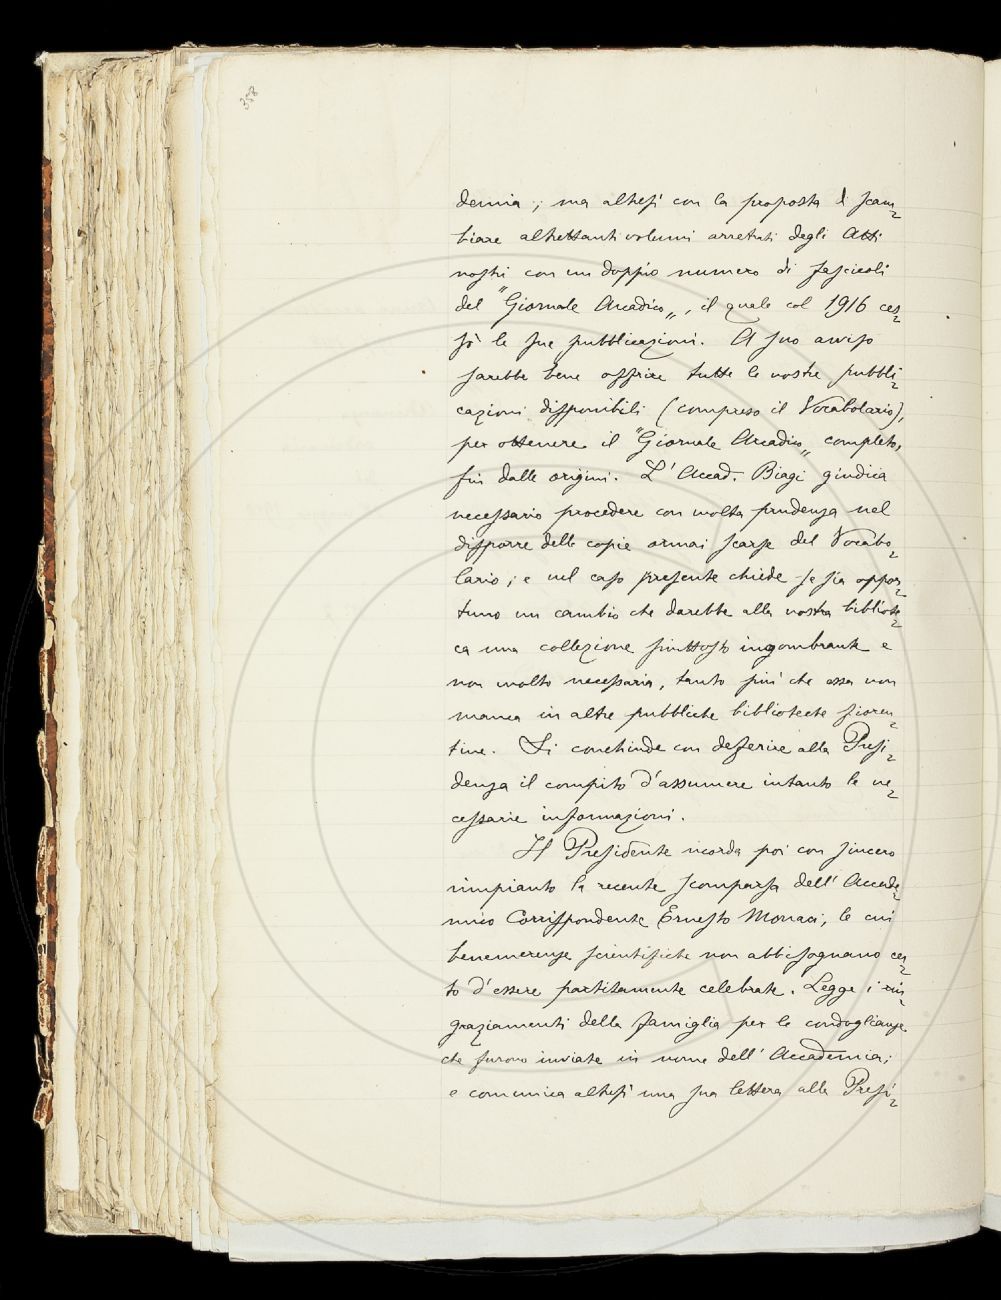 358
demia; ma altresì con la proposta di scam=
biare altrettanti volumi arretrati degli Atti
nostri con un doppio numero di fascicoli
del "Giornale Arcadico„, il quale col 1916 ces=
sò le sue pubblicazioni. A suo avviso
sarebbe bene offrire tutte le nostre pubbli=
cazioni disponibili (compreso il Vocabolario),
per ottenere il "Giornale Arcadico„ completo,
fin dalle origini. L'Accad. Biagi giudica
necessario procedere con molta prudenza nel
disporre delle copie ormai scarse del Vocabo=
lario; e nel caso presente chiede se sia oppor=
tuno un cambio che darebbe alla nostra bibliote=
ca una collezione piuttosto ingombrante e
non molto necessaria, tanto più che essa non
manca in altre pubbliche biblioteche fioren=
tine. Si conchiude con deferire alla Presi=
denza il compito d'assumere intanto le ne=
cessarie informazioni.
Il Presidente ricorda poi con sincero
rimpianto la recente scomparsa dell'Accade=
mico Corrispondente Ernesto Monaci, le cui
benemerenze scientifiche non abbisognano cer=
to d'essere partitamente celebrate. Legge i rin=
graziamenti della famiglia per le condoglianze
che furono inviate in nome dell'Accademia;
e comunica altresì una sua lettera alla Presi=